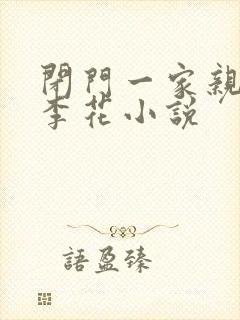 閉門一家親
李花小說
語盈臻